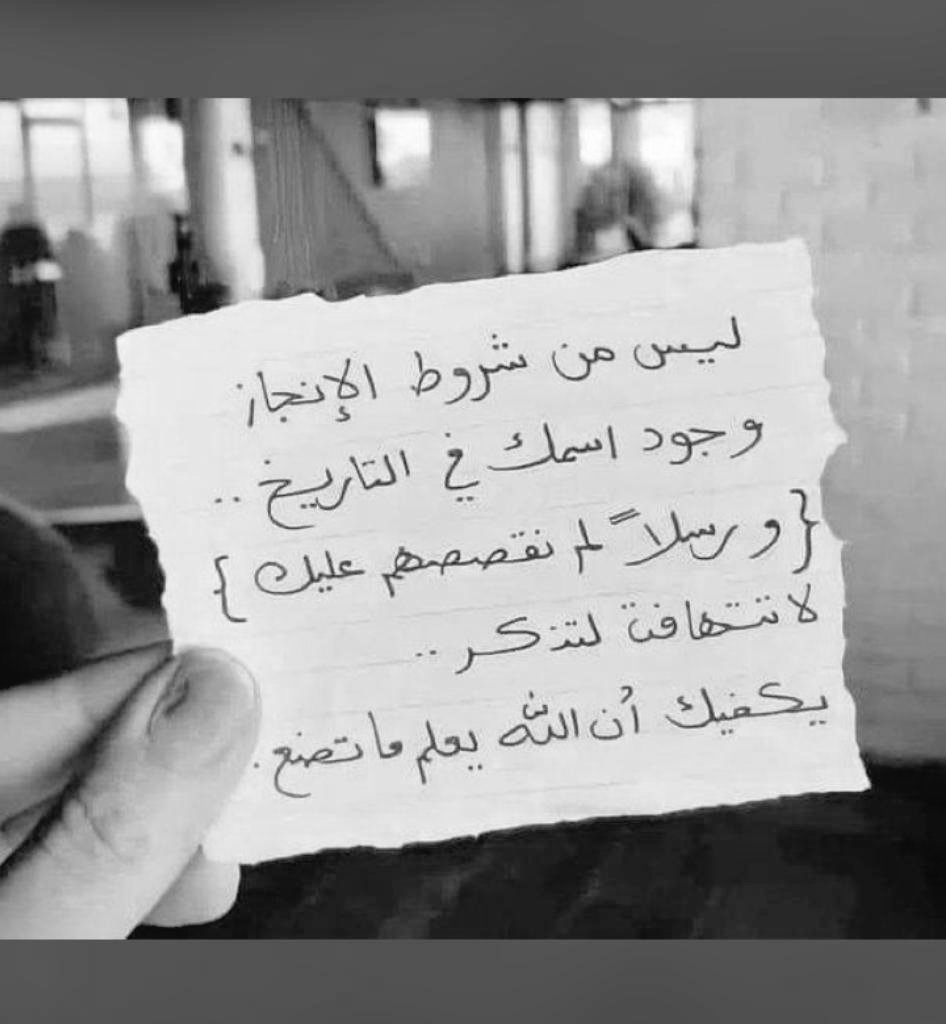 ليس من شروط الإنجاز
وجود اسمك في التاريخ ..
{ و رسلاً لم نقصصهم عليك }
لا تتهافت لتذكر ..
يكفيك أن الله يعلم ما تصنع .